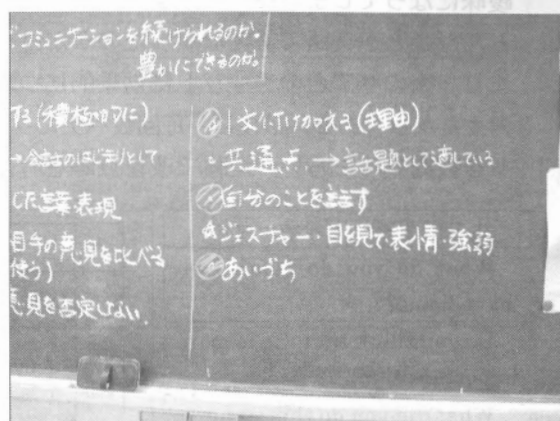 コミュニケーションを続けられるのか。
豊かにできるのか。
する(積極的に)
→会話のはじまりとして
した言葉・表現
相手の意見を比べる
使う)
意見を否定しない。
1文付け加える(理由)
共通点→話題として適している
自分のことを話す
ジェスチャー・目を見て・表情・強弱
あいづち